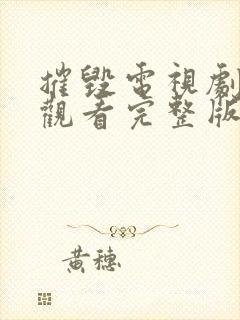 摧毀電視劇
觀看完整版
黃穗